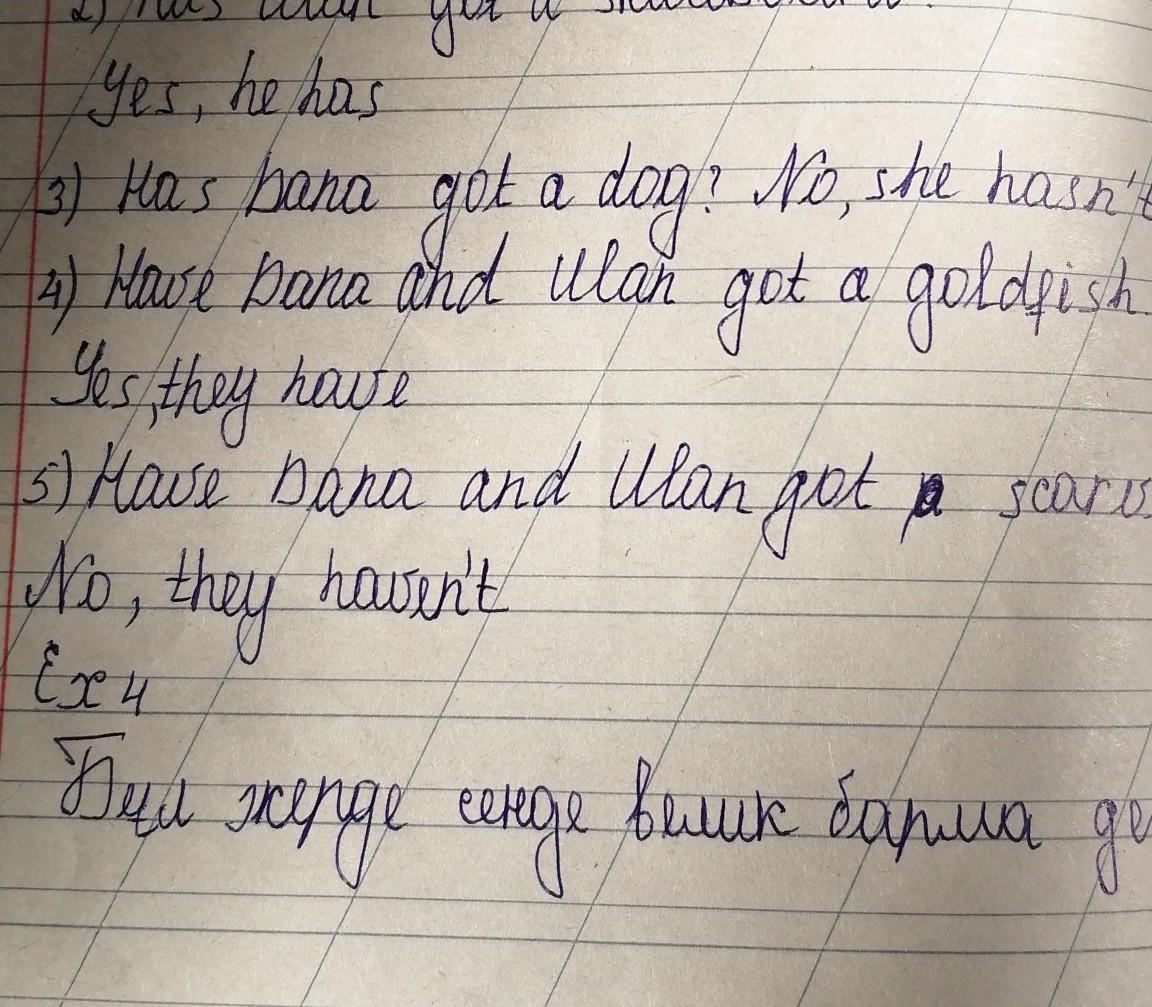 2) Has Ulan got a skateboard?
Yes, he has
3) Has Dana got a dog? No, she hasn't
4) Have Dana and Ulan got a goldfish
Yes, they have
5) Have Dana and Ulan got a
No, they haven't
Ex 4
Бул жерде сенде велик барма де